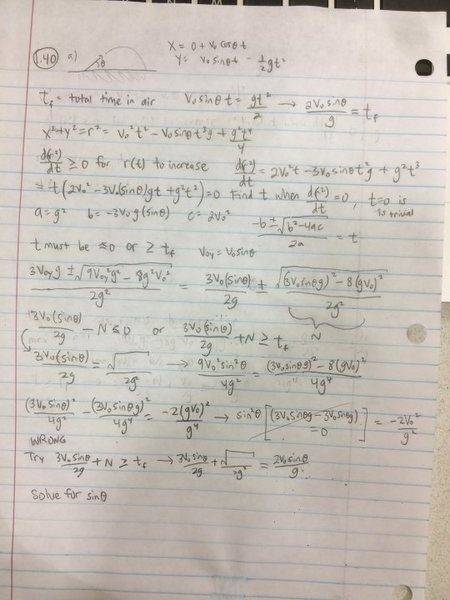 1.40 a) θ x = 0 + v₀ cosθ t
y = v₀ sinθt - ½gt²
t_f = total time in air v₀sinθ t = gt²/2 → 2v₀sinθ/g = t_f
x²+y²=r² = v₀²t² - v₀sinθt³g + g²t⁴/4
d(r²)/dt ≥ 0 for r(t) to increase d(r²)/dt = 2v₀²t - 3v₀sinθt²g + g²t³
= t(2v₀² - 3v₀(sinθ)gt + g²t²) = 0 Find t when d(r²)/dt = 0, t=0 is
is trivial
a = g² b = -3v₀g(sinθ) c = 2v₀² (-b±√(b²-4ac))/2a = t
t must be ≤0 or ≥ t_f v₀y = v₀sinθ
(3v₀yg ± √(9v₀y²g² - 8g²v₀²))/2g² = 3v₀(sinθ)/2g ± √((3v₀sinθg)² - 8(gv₀)²)/2g²
N
3v₀(sinθ)/2g - N ≤ 0 or 3v₀(sinθ)/2g + N ≥ t_f
3v₀(sinθ)/2g = √‾/2g² → 9v₀²sin²θ/4g² = ((3v₀sinθg)² - 8(gv₀)²)/4g⁴
(3v₀sinθ)²/4g² - (3v₀sinθg)²/4g⁴ = -2(gv₀)²/g⁴ → sin²θ [3v₀sinθg - 3v₀sinθg = 0] = -2v₀²/g²
WRONG
Try 3v₀sinθ/2g + N ≥ t_f → 3v₀sinθ/2g + √‾/2g² = 2v₀sinθ/g
Solve for sinθ